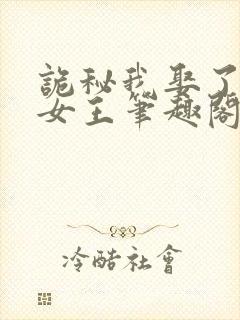 詭秘我娶了
女王筆趣閣
冷酷社會